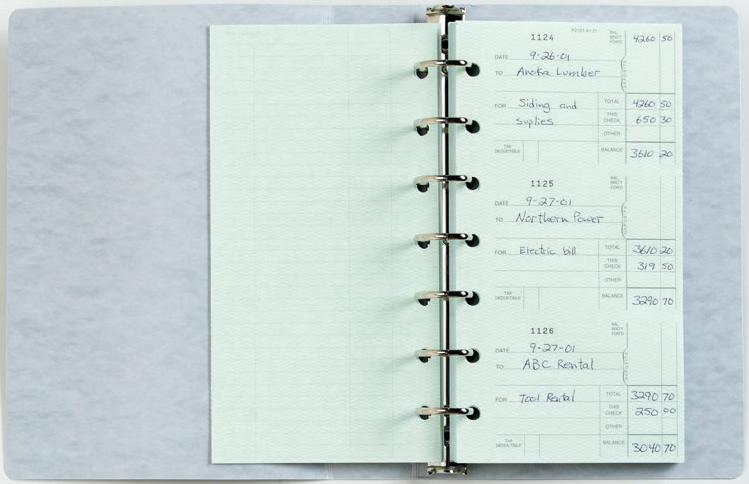 1124
BAL. BRO'T FOR'D 4260 50
DATE 9-26-01
TO Anoka Lumber
FOR Siding and TOTAL 4260 50
suplies THIS CHECK 650 30
OTHER
TAX DEDUCTIBLE BALANCE 3610 20
1125
BAL. BRO'T FOR'D
DATE 9-27-01
TO Northern Power
FOR Electric bill TOTAL 3610 20
THIS CHECK 319 50
OTHER
TAX DEDUCTIBLE BALANCE 3290 70
1126
BAL. BRO'T FOR'D
DATE 9-27-01
TO ABC Rental
FOR Tool Rental TOTAL 3290 70
THIS CHECK 250 00
OTHER
TAX DEDUCTIBLE BALANCE 3040 70